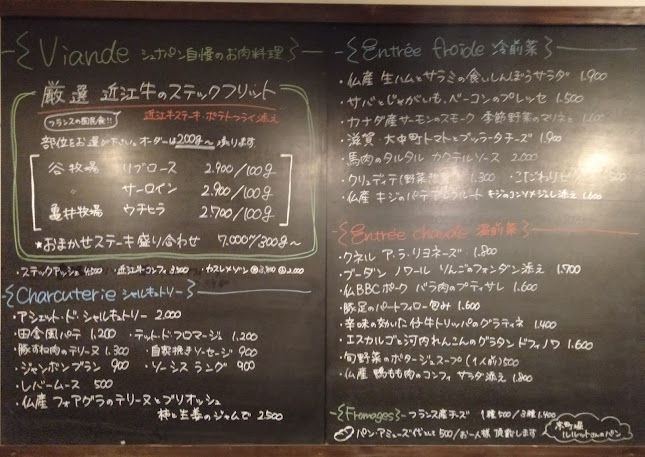 Viande シュナパン自慢のお肉料理
厳選 近江牛のステックフリット
フランスの国民食!! 近江牛ステーキ・ポテトフライ添え
部位をお選び下さい。オーダーは200g〜承ります
谷牧場 リブロース 2.900/100g
〃 サーロイン 2.900/100g
亀井牧場 ウチヒラ 2.700/100g
*おまかせステーキ盛り合わせ 7.000/300g〜
・ステックアッシェ 4500 ・近江牛コンフィ 3500 ・カスレメゾン
Charcuterie シャルキュトリー
・アシェット・ド・シャルキュトリー 2.000
・田舎風パテ 1.200 ・テット・ド・フロマージュ 1.200
・豚すね肉のテリーヌ 1.300 ・自家挽きソーセージ 900
・ジャンボンブラン 900 ・ソーシスラング 900
・レバームース 500
・仏産 フォアグラのテリーヌとブリオッシュ
柿と生姜のジャムで 2500
Entrée froide 冷前菜
・仏産 生ハムとサラミの食いしんぼうサラダ 1.900
・サバとじゃがいも、ベーコンのプレッセ 1.500
・カナダ産サーモンのスモーク 季節野菜のマリネと
・滋賀・大中町トマトとブッラータチーズ 1.900
・馬肉のタルタル カクテルソース 2.000
・クリュディテ(野菜 1.300 ・こだわり
・仏産 キジのパテ キジのコンソメジュレ添え 1.600
Entrée chaude 温前菜
・クネル ア・ラ・リヨネーズ 1.800
・ブーダン ノワール りんごのフォンダン添え 1.700
・仏BBCポーク バラ肉のプティサレ 1.600
・豚足のパートフィロー包み 1.600
・辛味の効いた仔牛トリッパのグラティネ 1.400
・エスカルゴと河内れんこんのグラタン ドフィノワ 1.600
・旬野菜のポタージュスープ(1人前)500
・仏産 鴨もも肉のコンフィ サラダ添え 1.800
Fromages フランス産チーズ 1種500/3種1.400
パン・アミューズ代として 500/お一人様 頂戴します
京町堀
ルルットさんのパン